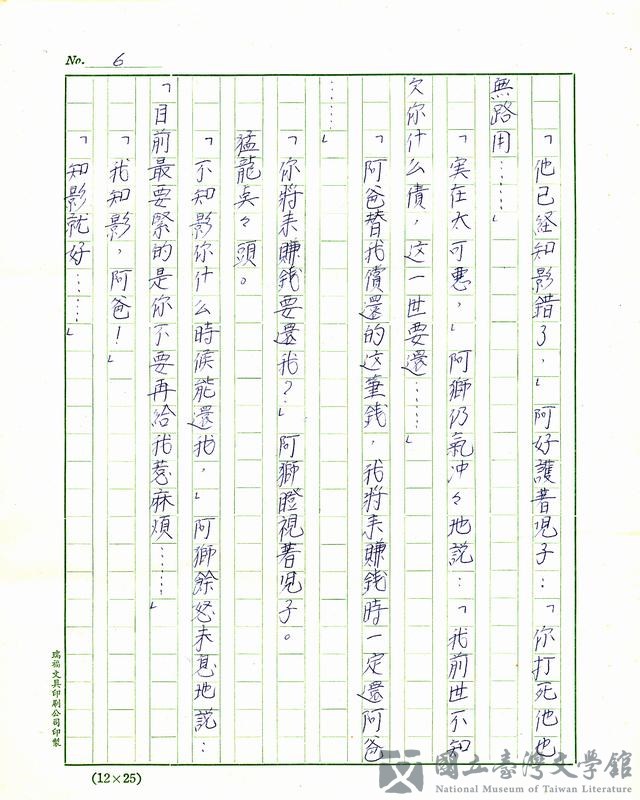 No. 6
「他已経知影錯了，」阿好護着児子：「你打死他也
無路用……」
「実在太可悪，」阿獅仍氣冲々地説：「我前世不知
欠你什么債，这一世要還……」
「阿爸替我償還的这筆銭，我將来賺銭時一定還阿爸
……」
「你將来賺銭要還我？」阿獅瞪視着児子。
猛龍点々頭。
「不知影你什么時候能還我，」阿獅餘怒未息地説：
「目前最要緊的是你不要再給我惹麻煩……」
「我知影，阿爸！」
「知影就好……」
瑞福文具印刷公司印製
(12×25)
國立臺灣文學館
National Museum of Taiwan Literature